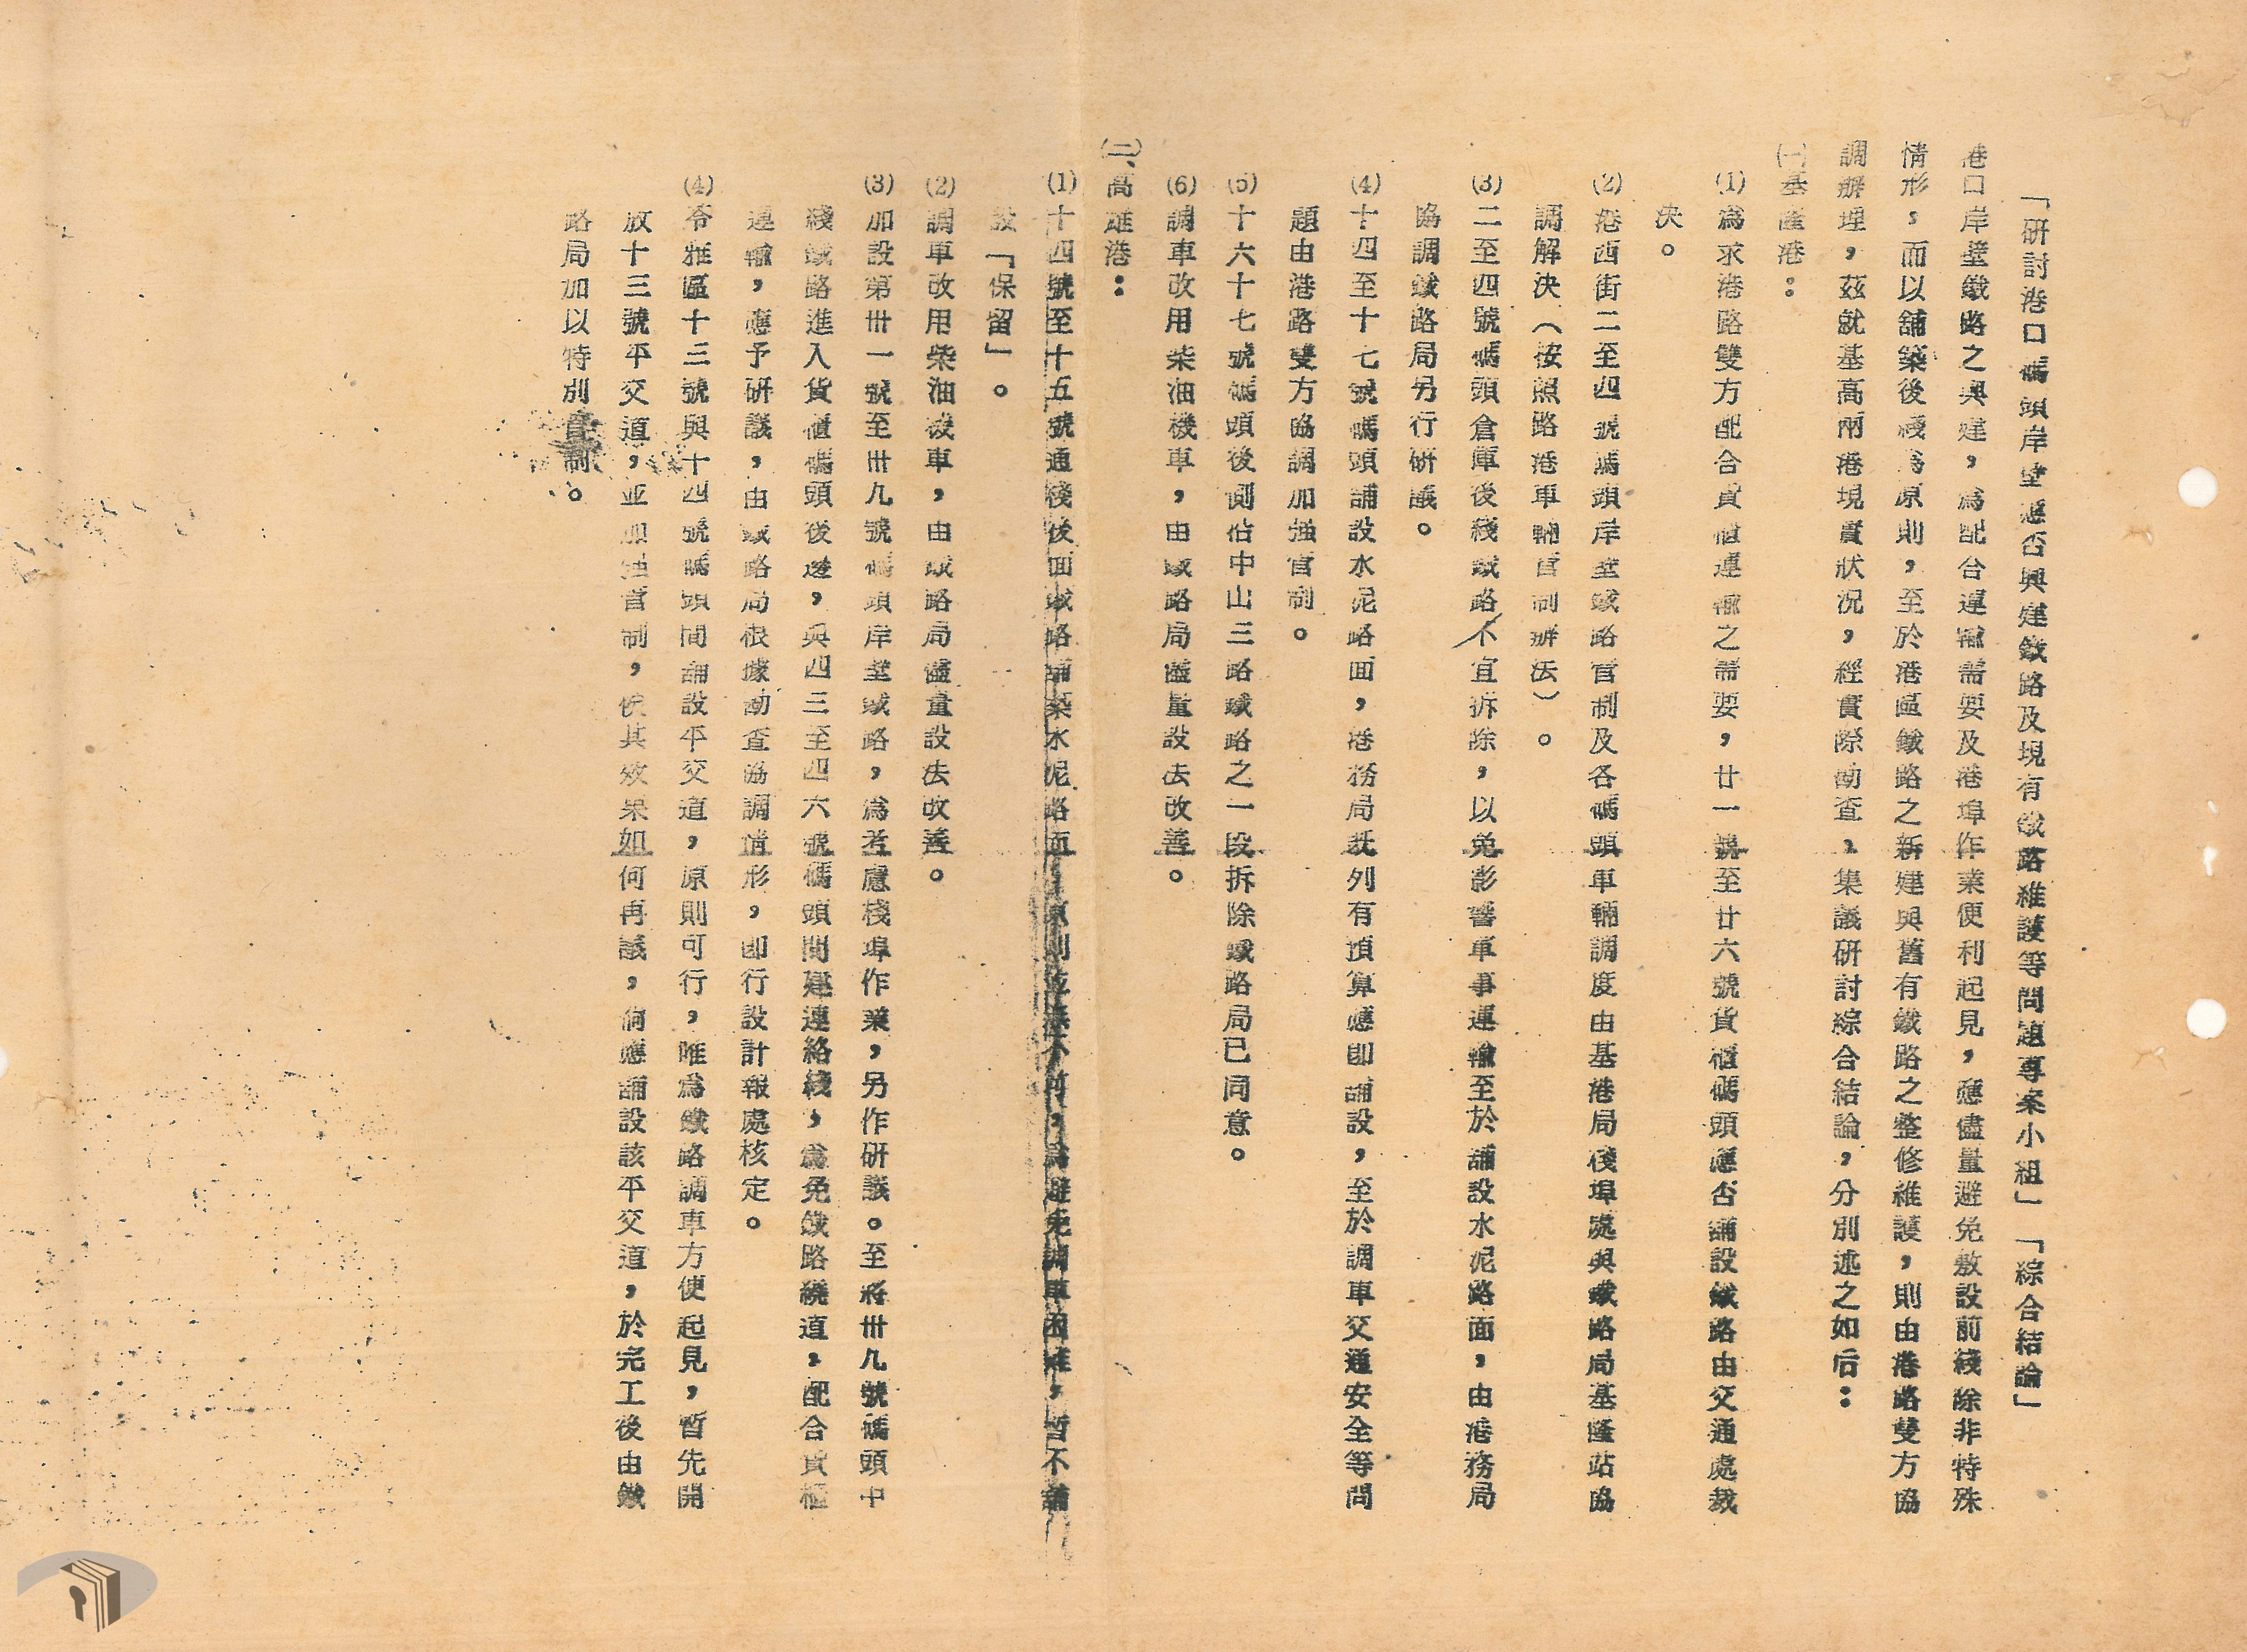 「研討港口碼頭岸壁應否興建鐵路及現有鐵路維護等問題專案小組」「綜合結論」
港口岸壁鐵路之興建，為配合運輸需要及港埠作業便利起見，應儘量避免敷設前綫除非特殊
情形，而以舖築後綫為原則，至於港區鐵路之新建與舊有鐵路之整修維護，則由港路雙方協
調辦理，茲就基高兩港現實狀況，經實際勘查，集議研討綜合結論，分別述之如后：
㈠基隆港：
(1)為求港路雙方配合貨櫃運輸之需要，廿一號至廿六號貨櫃碼頭應否舖設鐵路由交通處裁
決。
(2)港西街二至四號碼頭岸壁鐵路管制及各碼頭車輛調度由基港局棧埠處與鐵路局基隆站協
調解決（按照路港車輛管制辦法）。
(3)二至四號碼頭倉庫後綫鐵路不宜拆除，以免影響軍事運輸至於舖設水泥路面，由港務局
協調鐵路局另行研議。
(4)十四至十七號碼頭舖設水泥路面，港務局既列有預算應即舖設，至於調車交通安全等問
題由港路雙方協調加強管制。
(5)十六十七號碼頭後側佔中山三路鐵路之一段拆除鐵路局已同意。
(6)調車改用柴油機車，由鐵路局儘量設法改善。
㈡、高雄港：
(1)十四號至十五號通棧後面鐵路舖築水泥路面，原則並無不可，為避免調車困難，暫不舖
設「保留」。
(2)調車改用柴油機車，由鐵路局儘量設法改善。
(3)加設第卅一號至卅九號碼頭岸壁鐵路，為考慮棧埠作業，另作研議。至將卅九號碼頭中
綫鐵路進入貨櫃碼頭後邊，與四三至四六號碼頭間建連絡綫，為免鐵路繞道，配合貨櫃
運輸，應予研議，由鐵路局根據勘查協調情形，即行設計報處核定。
(4)苓雅區十三號與十四號碼頭間舖設平交道，原則可行，唯為鐵路調車方便起見，暫先開
放十三號平交道，並加強管制，俟其效果如何再議，倘應舖設該平交道，於完工後由鐵
路局加以特別管制。